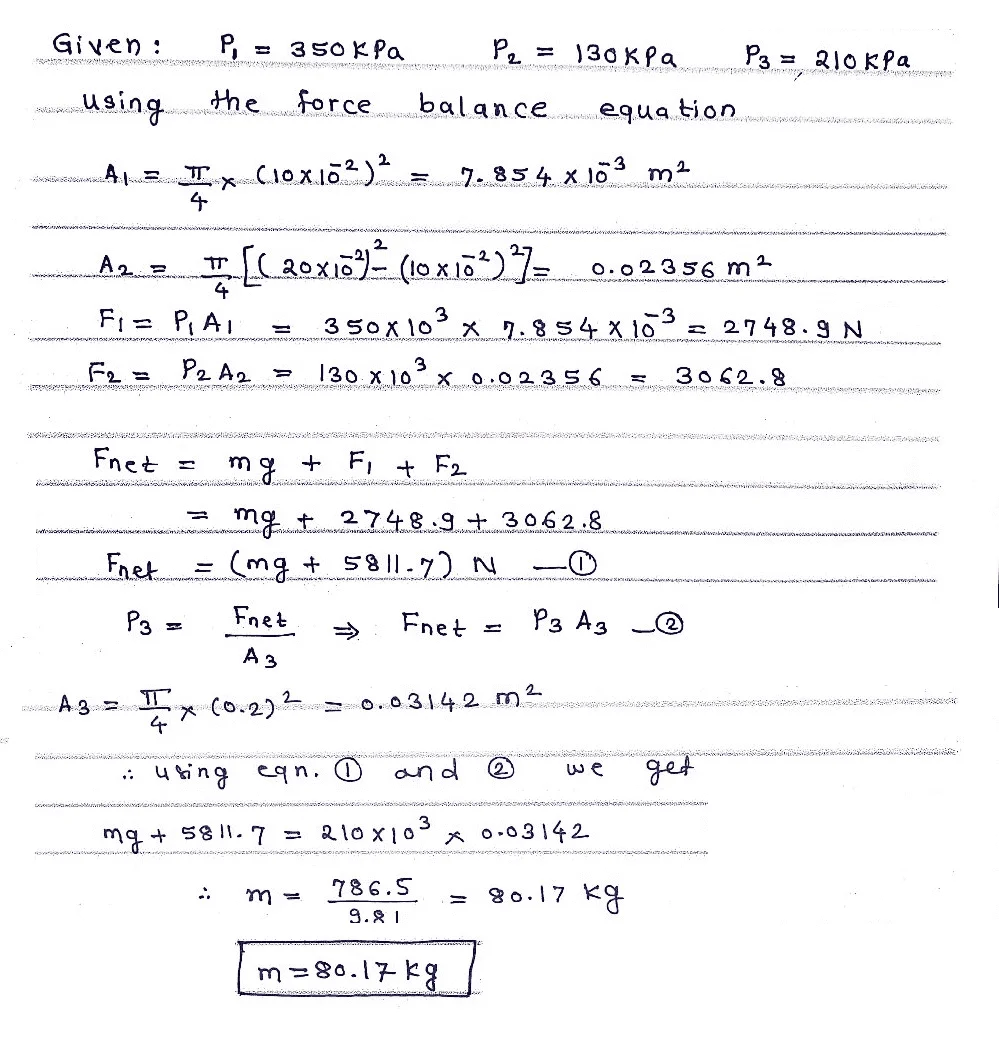 Given : P₁ = 350KPa P₂ = 130KPa P₃ = 210KPa
using the force balance equation
A₁ = π/4 × (10×10⁻²)² = 7.854 × 10⁻³ m²
A₂ = π/4 [(20×10⁻²)² - (10×10⁻²)²] = 0.02356 m²
F₁ = P₁A₁ = 350×10³ × 7.854 × 10⁻³ = 2748.9 N
F₂ = P₂A₂ = 130×10³ × 0.02356 = 3062.8
Fnet = mg + F₁ + F₂
= mg + 2748.9 + 3062.8
Fnet = (mg + 5811.7) N —①
P₃ = Fnet/A₃ ⇒ Fnet = P₃A₃ —②
A₃ = π/4 × (0.2)² = 0.03142 m²
∴ using eqn. ① and ② we get
mg + 5811.7 = 210×10³ × 0.03142
∴ m = 786.5/9.81 = 80.17 kg
m = 80.17 kg